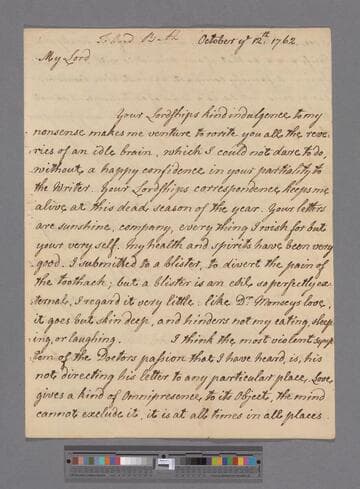 To Lord Bath October yᵉ 12th. 1762
My Lord
Your Lordships kind indulgence to my
nonsense makes me venture to write you all the reve-
ries of an idle brain, which I could not dare to do,
without a happy confidence in your partiality to
the Writer. Your Lordships correspondence keeps me
alive at this dead season of the year. Your letters
are sunshine, company, every thing I wish for but
your very self. My health and spirits have been very
good. I submitted to a blister, to divert the pain of
the toothach; but a blister is an evil so perfectly ex-
ternal, I regard it very little. like Dr. Monseys love,
it goes but skin deep, and hinders not my eating, sleep-
ing, or laughing. I think the most violent symp-
tom of the Doctors passion that I have heard is, his
not directing his letter to any particular place, Love
gives a kind of Omnipresence, to its Object, the mind
cannot exclude it, it is at all times in all places.